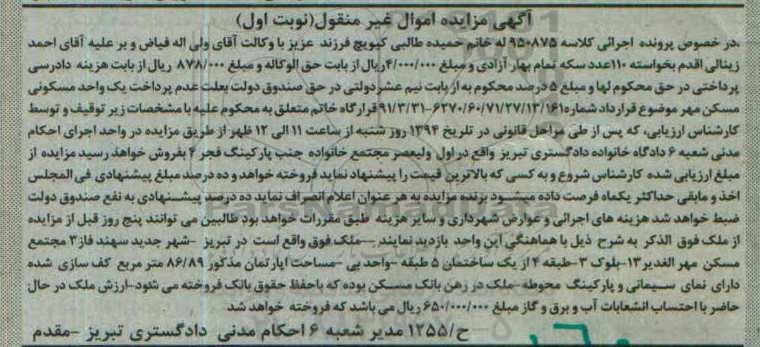 آگهی مزایده اموال غیر منقول(نوبت اول)
در خصوص پرونده اجرائی کلاسه ۹۵۰۸۷۵ له خانم حمیده طالبی کیویچ فرزند عزیز با وکالت آقای ولی اله فیاض و بر علیه آقای احمد
زینالی اقدم بخواسته ۱۱۰عدد سکه تمام بهار آزادی و مبلغ ۴/۰۰۰/۰۰۰ریال از بابت حق الوکاله و مبلغ ۸۷۸/۰۰۰ ریال از بابت هزینه دادرسی
پرداختی در حق محکوم لها و مبلغ ۵درصد محکوم به از بابت نیم عشر دولتی در حق صندوق دولت بعلت عدم پرداخت یک واحد مسکونی
مسکن مهر موضوع قرارداد شماره۶۲۷۰/۶۰/۷۱/۲۷/۱۳/۱۶۱-۹۱/۳/۳۱قرارگاه خاتم متعلق به محکوم علیه با مشخصات زیر توقیف و توسط
کارشناس ارزیابی، که پس از طی مراحل قانونی در تاریخ ۱۳۹۴ روز شنبه از ساعت ۱۱ الی ۱۲ ظهر از طریق مزایده در واحد اجرای احکام
مدنی شعبه ۶ دادگاه خانواده دادگستری تبریز واقع در اول ولیعصر مجتمع خانواده جنب پارکینگ فجر ۴ بفروش خواهد رسید مزایده از
مبلغ ارزیابی شده کارشناس شروع و به کسی که بالاترین قیمت را پیشنهاد نماید فروخته خواهد و ده درصد مبلغ پیشنهادی فی المجلس
اخذ و مابقی حداکثر یکماه فرصت داده میشود برنده مزایده به هر عنوان اعلام انصراف نماید ده درصد پیشنهادی به نفع صندوق دولت
ضبط خواهد شد هزینه های اجرائی و عوارض شهرداری و سایر هزینه طبق مقررات خواهد بود طالبین می توانند پنج روز قبل از مزایده
از ملک فوق الذکر به شرح ذیل با هماهنگی این واحد بازدید نمایند —ملک فوق واقع است در تبریز -شهر جدید سهند فاز۳ مجتمع
مسکن مهر الغدیر۱۳-بلوک ۳-طبقه ۴ از یک ساختمان ۵ طبقه -واحد بی -مساحت اپارتمان مذکور ۸۶/۸۹ متر مربع کف سازی شده
دارای نمای سیمانی و پارکینگ محوطه -ملک در رهن بانک مسکن بوده که باحفظ حقوق بانک فروخته می شود-ارزش ملک در حال
حاضر با احتساب انشعابات آب و برق و گاز مبلغ ۶۵۰/۰۰۰/۰۰۰ ریال می باشد که فروخته خواهد شد
ح/۱۲۵۵ مدیر شعبه ۶ احکام مدنی دادگستری تبریز -مقدم